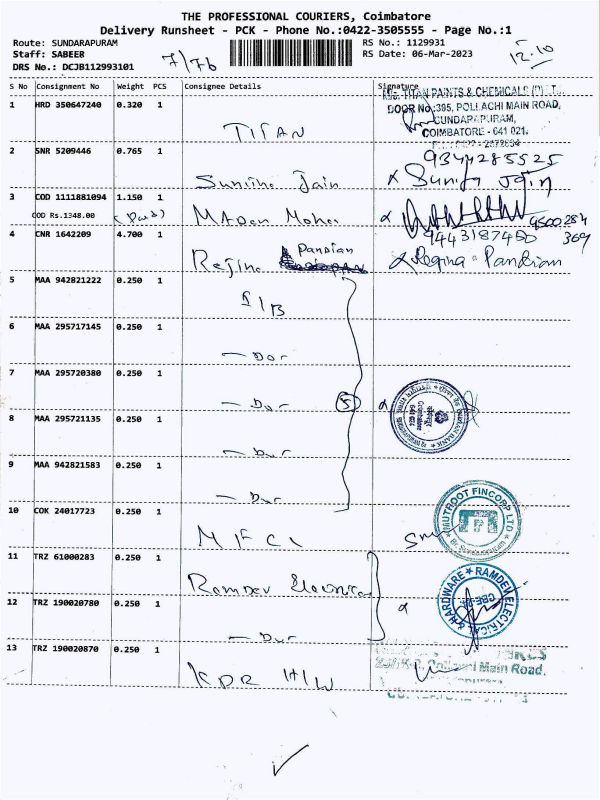 THE PROFESSIONAL COURIERS, Coimbatore
Delivery Runsheet - PCK - Phone No.:0422-3505555 - Page No.:1
Route: SUNDARAPURAM RS No.: 1129931
Staff: SABEER RS Date: 06-Mar-2023
DRS No.: DCJB112993101 7/76 12.10
S No Consignment No Weight PCS Consignee Details Signature
TITAN PAINTS & CHEMICALS (P)
1 HRD 350647240 0.320 1 DOOR No:395, POLLACHI MAIN ROAD,
SUNDARAPURAM,
TITAN COIMBATORE - 641 021.
2 SNR 5209446 0.765 1 9344285525
Jain Sunita Jain
3 COD 1111881094 1.150 1
COD Rs.1348.00 (Paid) Madan Mohan 9500284
4 CNR 1642209 4.700 1 9443187480 369
Pandian
Regina Regina Pandian
5 MAA 942821222 0.250 1
I/B
6 MAA 295717145 0.250 1
- Do -
7 MAA 295720380 0.250 1
- Do - 5
INDIAN BANK
8 MAA 295721135 0.250 1
- Do -
9 MAA 942821583 0.250 1
- Do -
10 COK 24017723 0.250 1
MUTHOOT FINCORP LTD
MFCL
11 TRZ 61000283 0.250 1
Ramdev RAMDEV ELECTRICAL & HARDWARE
12 TRZ 190020780 0.250 1
CBE-24
- Do -
13 TRZ 190020870 0.250 1
Main Road.
KDR H/W